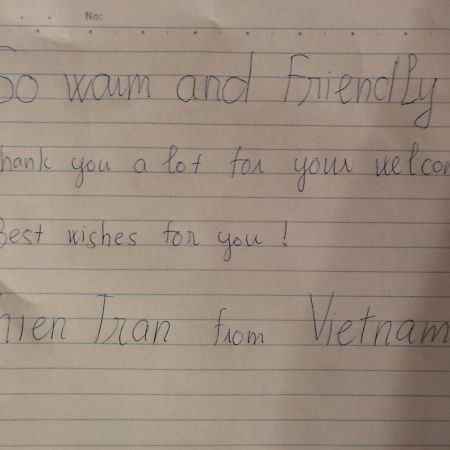 No:
So warm and Friendly
Thank you a lot for your welcom
Best wishes for you !
hien Tran from Vietnam